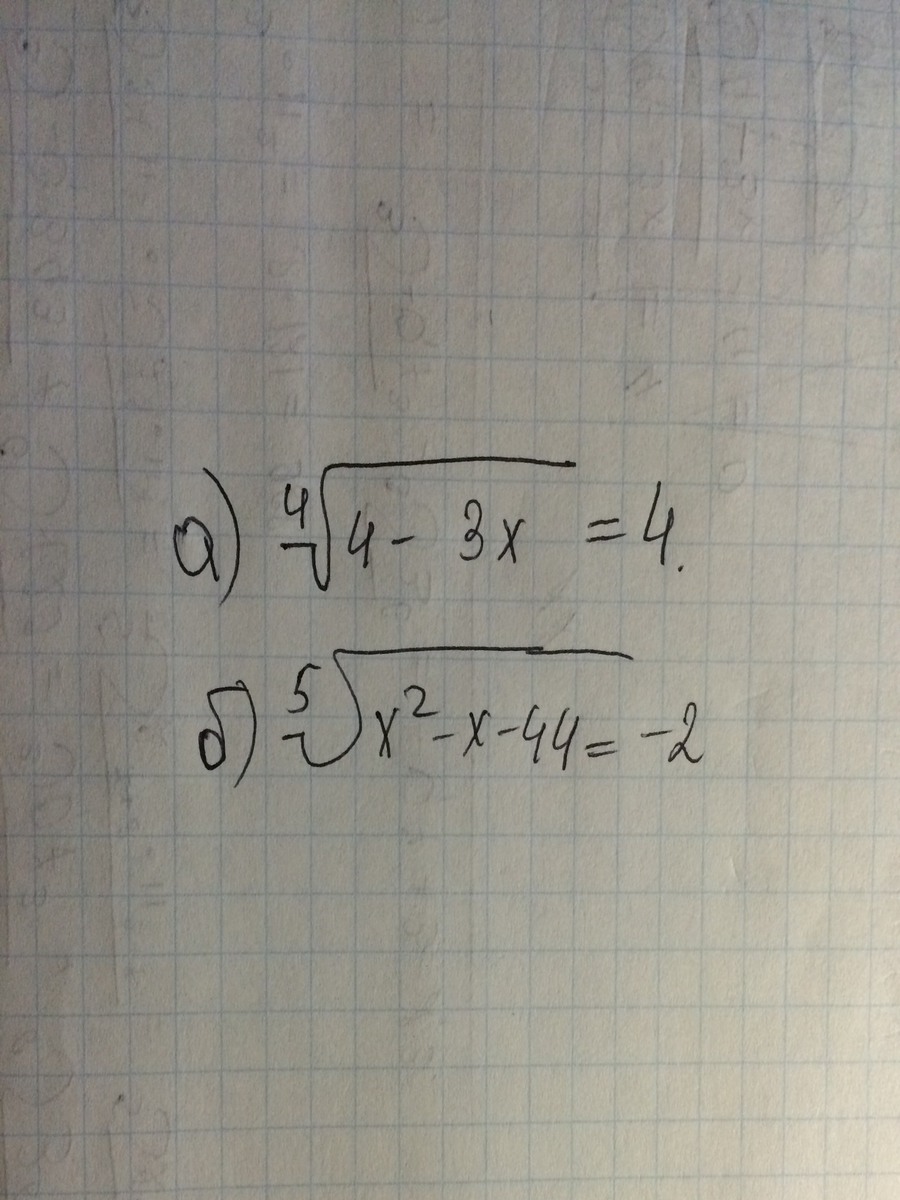 а) ∜(4 - 3x) = 4.
б) ⁵√(x² - x - 44) = -2